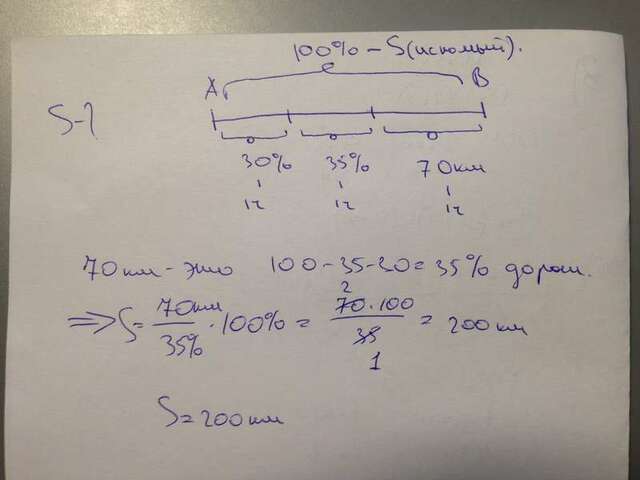 100% - S(искомый).
A B
S-?
30% 35% 70км
1ч 1ч 1ч
70км - это 100-35-30=35% дороги.
⇒ S = 70км/35% · 100% = 70·100/35 = 200км
2
1
S=200км